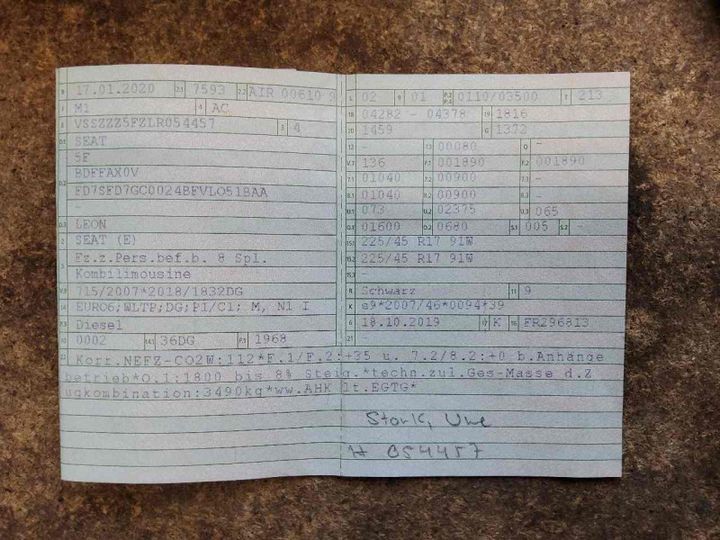 B 17.01.2020 2.1 7593 2.2 AIR 00610 9
J M1 4 AC
E VSSZZZ5FZLR054457 3 4
D.1 SEAT
5F
D.2 BDFFAX0V
FD7SFD7GC0024BFVLO51BAA
-
D.3 LEON
2 SEAT (E)
5 Fz.z.Pers.bef.b. 8 Spl.
Kombilimousine
V.9 715/2007*2018/1832DG
14 EURO6;WLTP;DG;PI/CI: M, N1 I
P.3 Diesel
10 0002 14.1 36DG P.1 1968
L 02 9 01 P.2 P.4 0110/03500 T 213
18 04282 - 04378 19 1816
20 1459 G 1372
12 - 13 00080 Q -
V.7 136 F.1 001890 F.2 001890
7.1 01040 7.2 00900 7.3 -
8.1 01040 8.2 00900 8.3 -
U.1 073 U.2 02375 U.3 065
O.1 01600 O.2 0680 S.1 005 S.2 -
15.1 225/45 R17 91W
15.2 225/45 R17 91W
15.3 -
R Schwarz 11 9
K e9*2007/46*0094*39
6 18.10.2019 17 K 16 FR296813
21 -
22 Korr.NEFZ-CO2W:112*F.1/F.2:+35 u. 7.2/8.2:+0 b.Anhänge
betrieb*O.1:1800 bis 8% Steig.*techn.zul.Ges-Masse d.Z
ugkombination:3490kg*ww.AHK lt.EGTG*
Stark, Uwe
054457